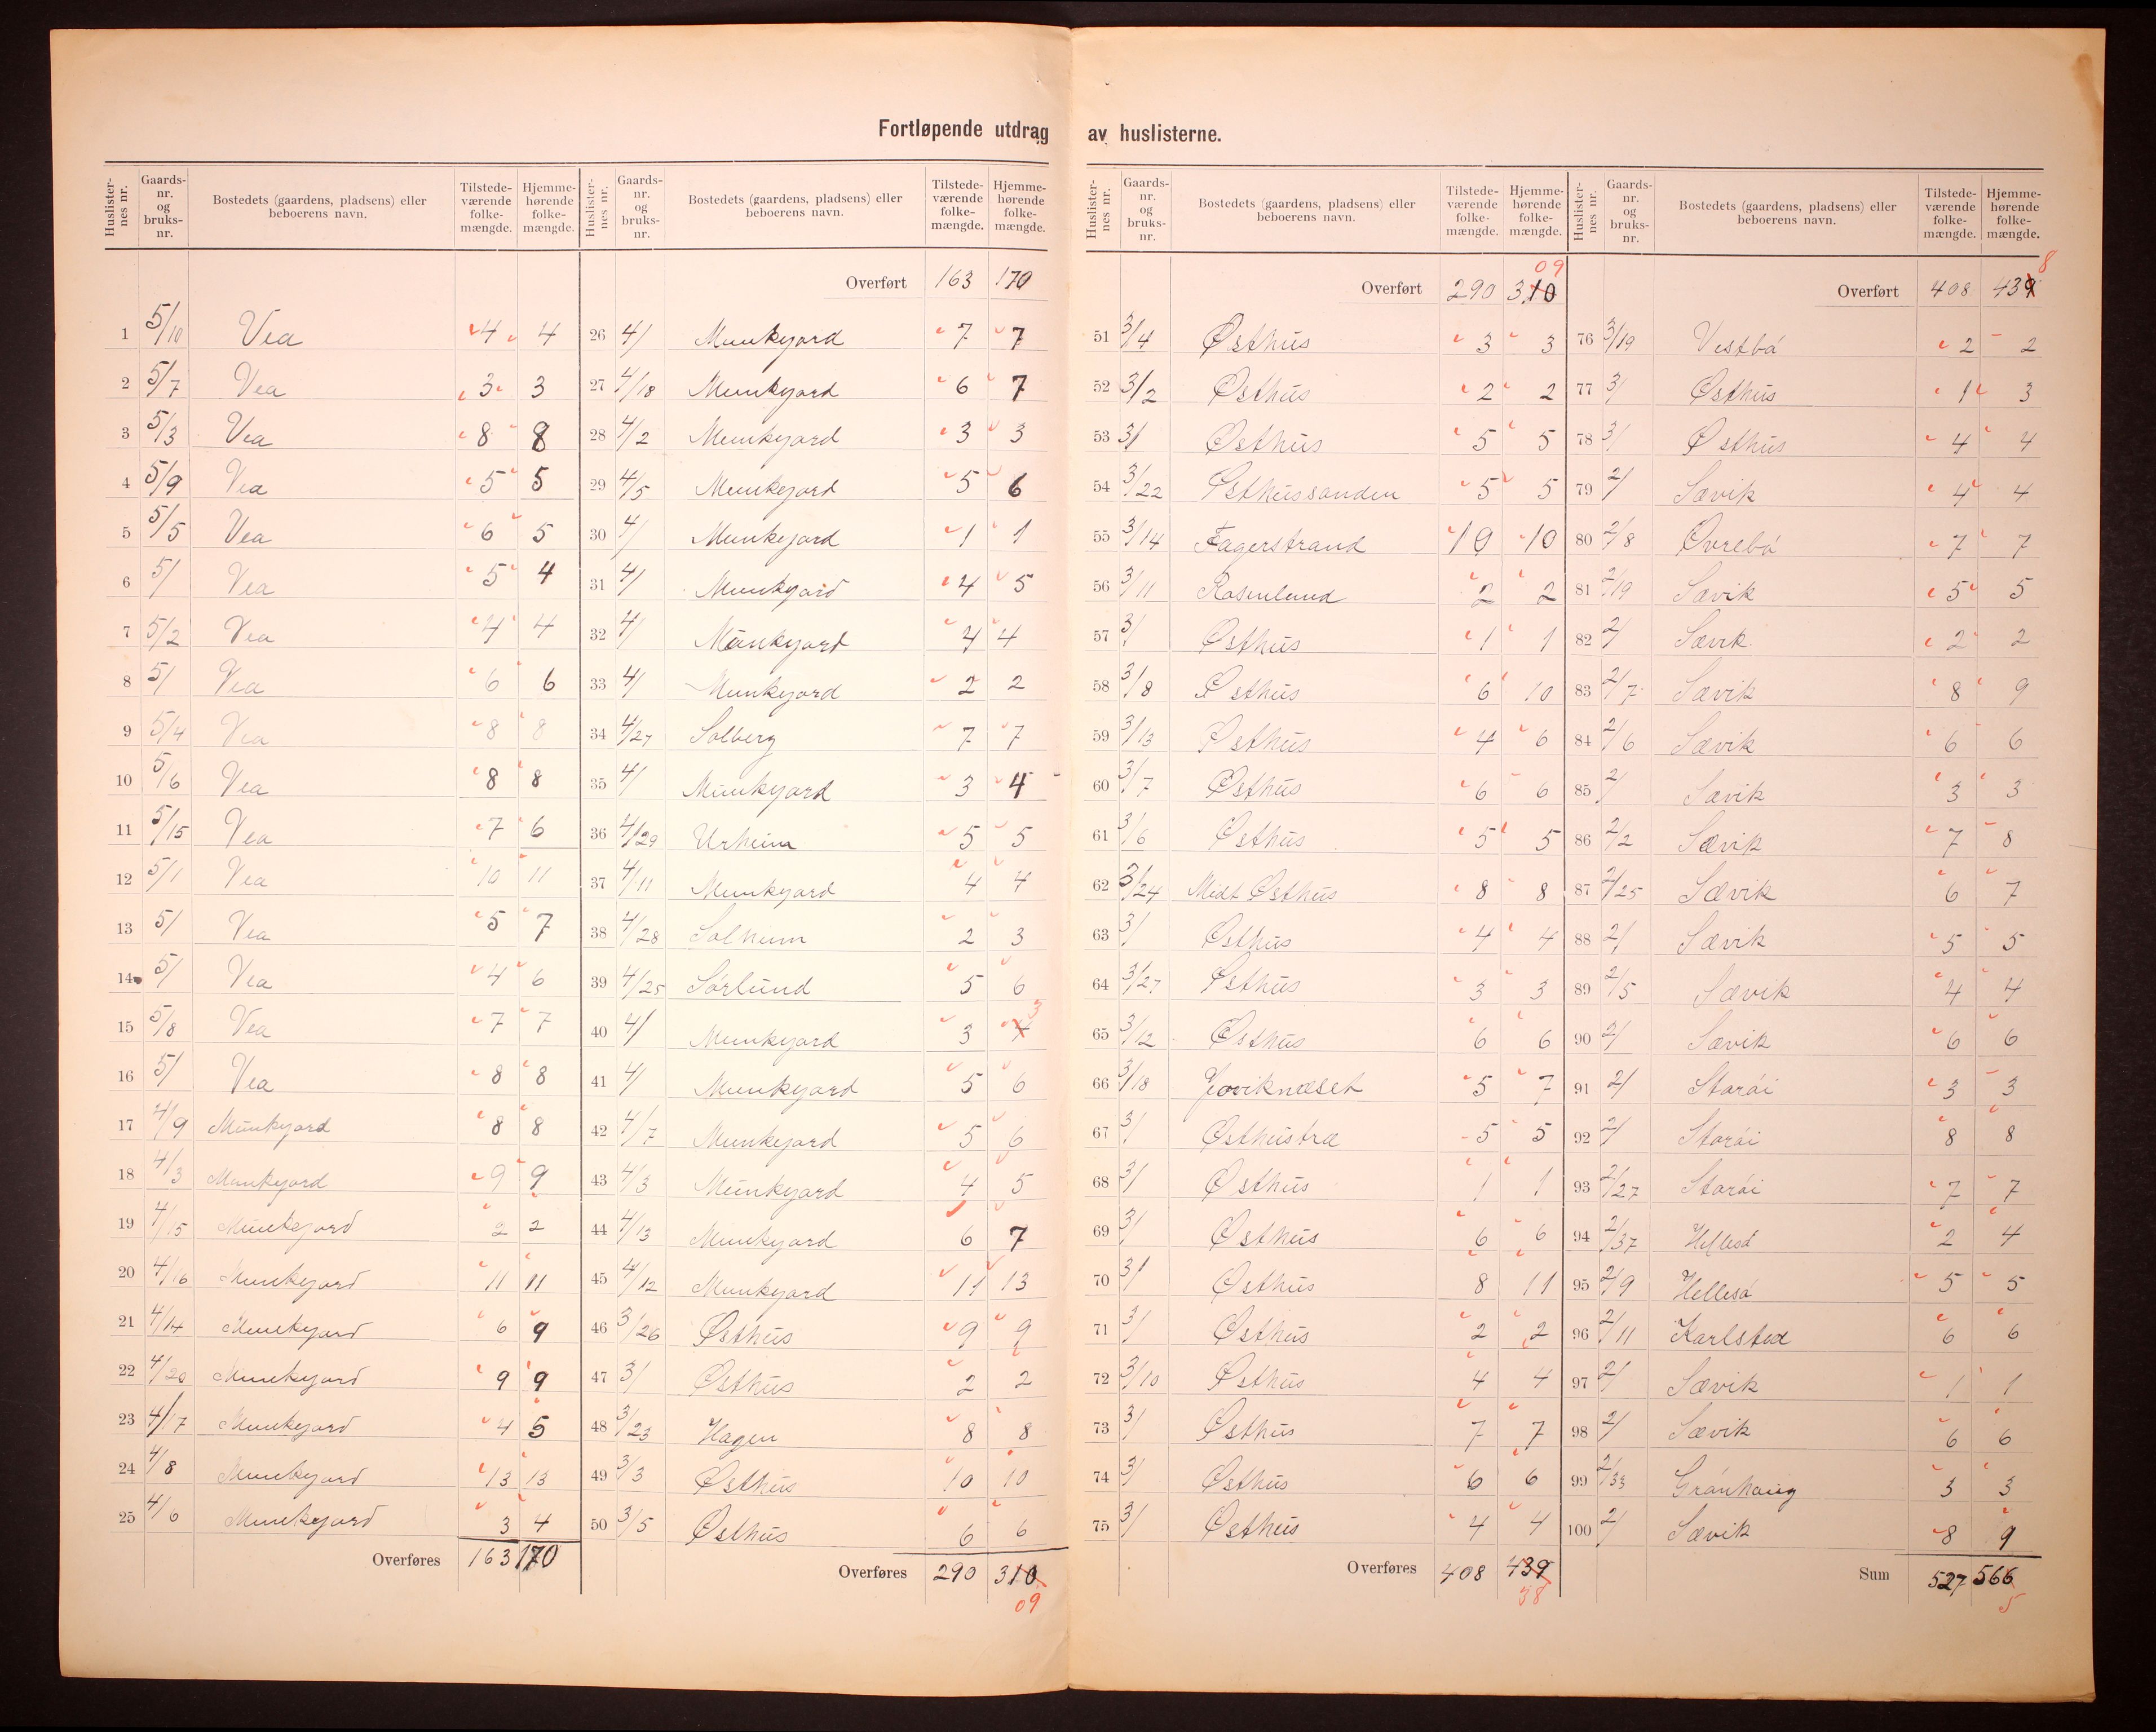 Fortløpende utdrag av huslisterne.
Huslisternes nr. Gaards-nr. og bruks-nr. Bostedets (gaardens, pladsens) eller beboerens navn. Tilstedeværende folkemængde. Hjemmehørende folkemængde.
1 5/10 Vea 4 4
2 5/7 Vea 3 3
3 5/3 Vea 8 8
4 5/9 Vea 5 5
5 5/5 Vea 6 5
6 5/ Vea 5 4
7 5/2 Vea 4 4
8 5/ Vea 6 6
9 5/4 Vea 8 8
10 5/6 Vea 8 8
11 5/15 Vea 7 6
12 5/1 Vea 10 11
13 5/ Vea 5 7
14 5/ Vea 4 6
15 5/8 Vea 7 7
16 5/ Vea 8 8
17 4/9 Munkejord 8 8
18 4/3 Munkejord 9 9
19 4/15 Munkejord 2 2
20 4/16 Munkejord 11 11
21 4/14 Munkejord 6 9
22 4/20 Munkejord 9 9
23 4/17 Munkejord 4 5
24 4/8 Munkejord 13 13
25 4/6 Munkejord 3 4
Overføres 163 170
Huslisternes nr. Gaards-nr. og bruks-nr. Bostedets (gaardens, pladsens) eller beboerens navn. Tilstedeværende folkemængde. Hjemmehørende folkemængde.
Overført 163 170
26 4/ Munkejord 7 7
27 4/18 Munkejord 6 7
28 4/2 Munkejord 3 3
29 4/5 Munkejord 5 6
30 4/ Munkejord 1 1
31 4/ Munkejord 4 5
32 4/ Munkejord 4 4
33 4/ Munkejord 2 2
34 4/27 Solberg 7 7
35 4/ Munkejord 3 4
36 4/29 Urheim 5 5
37 4/11 Munkejord 4 4
38 4/28 Solheim 2 3
39 4/25 Sørlund 5 6
40 4/ Munkejord 3 4 3
41 4/ Munkejord 5 6
42 4/7 Munkejord 5 6
43 4/3 Munkejord 4 5
44 4/13 Munkejord 6 7
45 4/12 Munkejord 11 13
46 3/26 Østhus 9 9
47 3/ Østhus 2 2
48 3/23 Hagen 8 8
49 3/3 Østhus 10 10
50 3/5 Østhus 6 6
Overføres 290 310
09
Huslisternes nr. Gaards-nr. og bruks-nr. Bostedets (gaardens, pladsens) eller beboerens navn. Tilstedeværende folkemængde. Hjemmehørende folkemængde.
09
Overført 290 310
51 3/4 Østhus 3 3
52 3/2 Østhus 2 2
53 3/ Østhus 5 5
54 3/22 Østhussanden 5 5
55 3/14 Fagerstrand 10 10
56 3/11 Rosenlund 2 2
57 3/ Østhus 1 1
58 3/8 Østhus 6 10
59 3/13 Østhus 4 6
60 3/7 Østhus 6 6
61 3/6 Østhus 5 5
62 3/24 Midt Østhus 8 8
63 3/ Østhus 4 4
64 3/27 Østhus 3 3
65 3/12 Østhus 6 6
66 3/18 5 7
67 3/ Østhustræ 5 5
68 3/ Østhus 1 1
69 3/ Østhus 6 6
70 3/ Østhus 8 11
71 3/ Østhus 2 2
72 3/10 Østhus 4 4
73 3/ Østhus 7 7
74 3/ Østhus 6 6
75 3/ Østhus 4 4
Overføres 408 439
38
Huslisternes nr. Gaards-nr. og bruks-nr. Bostedets (gaardens, pladsens) eller beboerens navn. Tilstedeværende folkemængde. Hjemmehørende folkemængde.
8
Overført 408 439
76 3/19 Vestbø 2 2
77 3/ Østhus 1 3
78 3/ Østhus 4 4
79 2/ Sævik 4 4
80 2/8 Øvrebø 7 7
81 2/19 Sævik 5 5
82 2/ Sævik 2 2
83 2/7 Sævik 8 9
84 2/6 Sævik 6 6
85 2/ Sævik 3 3
86 2/2 Sævik 7 8
87 2/25 Sævik 6 7
88 2/ Sævik 5 5
89 2/5 Sævik 4 4
90 2/ Sævik 6 6
91 2/ Storøi 3 3
92 2/ Storøi 8 8
93 2/27 Storøi 7 7
94 2/37 Hellesø 2 4
95 2/9 Hellesø 5 5
96 2/11 Karlstad 6 6
97 2/ Sævik 1 1
98 2/ Sævik 6 6
99 2/33 Grønhaug 3 3
100 2/ Sævik 8 9
Sum 527 566
5